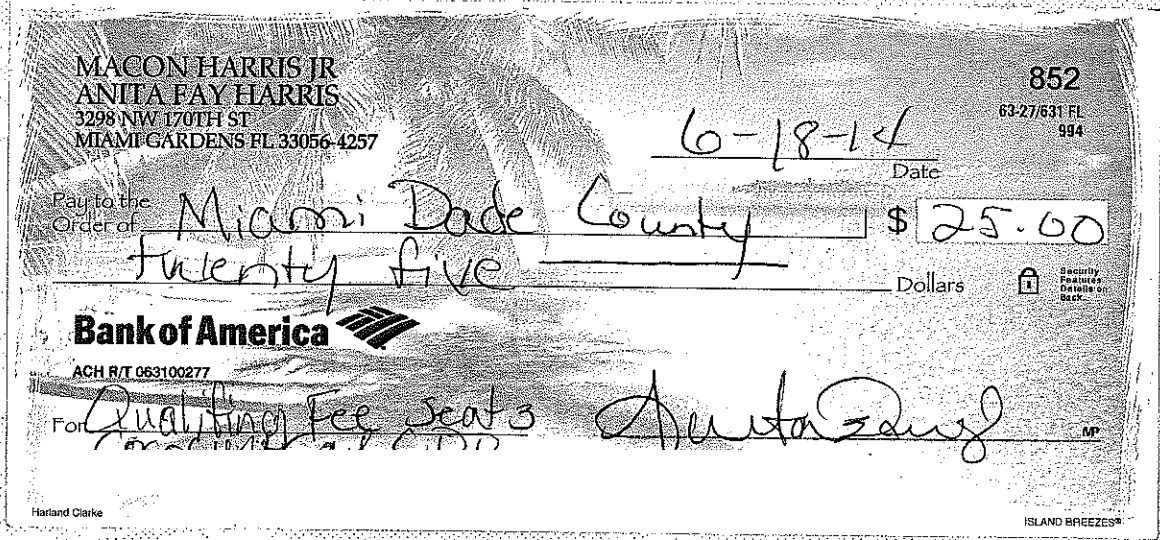 MACON HARRIS JR
ANITA FAY HARRIS
3298 NW 170TH ST
MIAMI GARDENS FL 33056-4257
852
63-27/631 FL
994
6-18-14
Date
Pay to the
Order of Miami Dade County $ 25.00
twenty five Dollars
Security
Features
Details on
Back.
Bank of America
ACH R/T 063100277
For Qualifing Fee Seat 3
MP
Harland Clarke
ISLAND BREEZES®